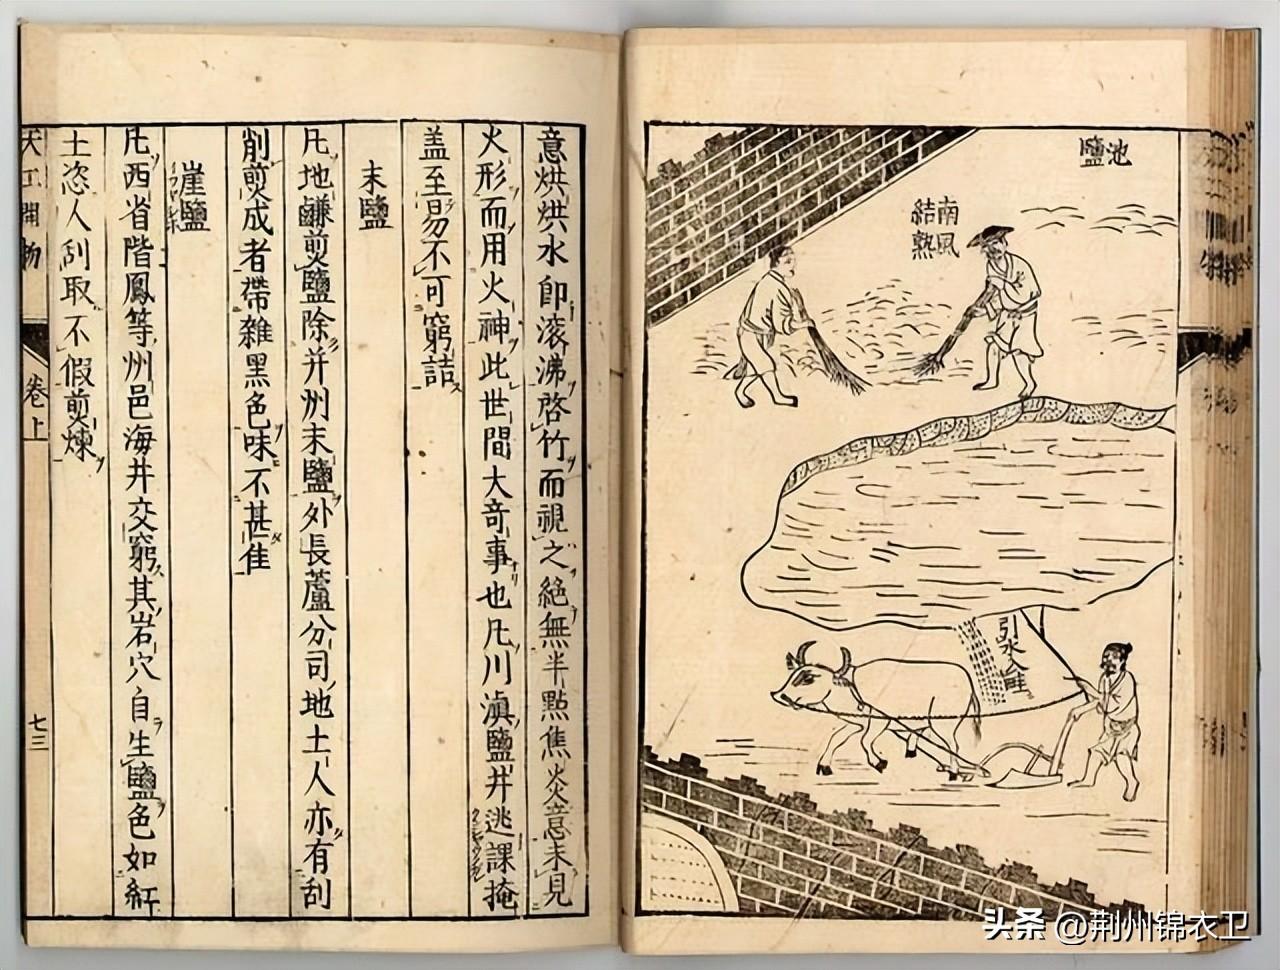 池鹽
南風
結熟
引水入畦
意烘烘水卽滚沸啓竹而視之絕無半點焦炎意未見
火形而用火神此世間大奇事也凡川滇鹽井逃課掩
盖至易不可窮詰
末鹽
凡地鹻煎鹽除并州末鹽外長蘆分司地土人亦有刮
削煎成者帶雜黑色味不甚佳
崖鹽
凡西省階鳳等州邑海井交窮其岩穴自生鹽色如紅
土恣人刮取不假煎煉
天工開物 卷上 七三
头条 @荆州锦衣卫